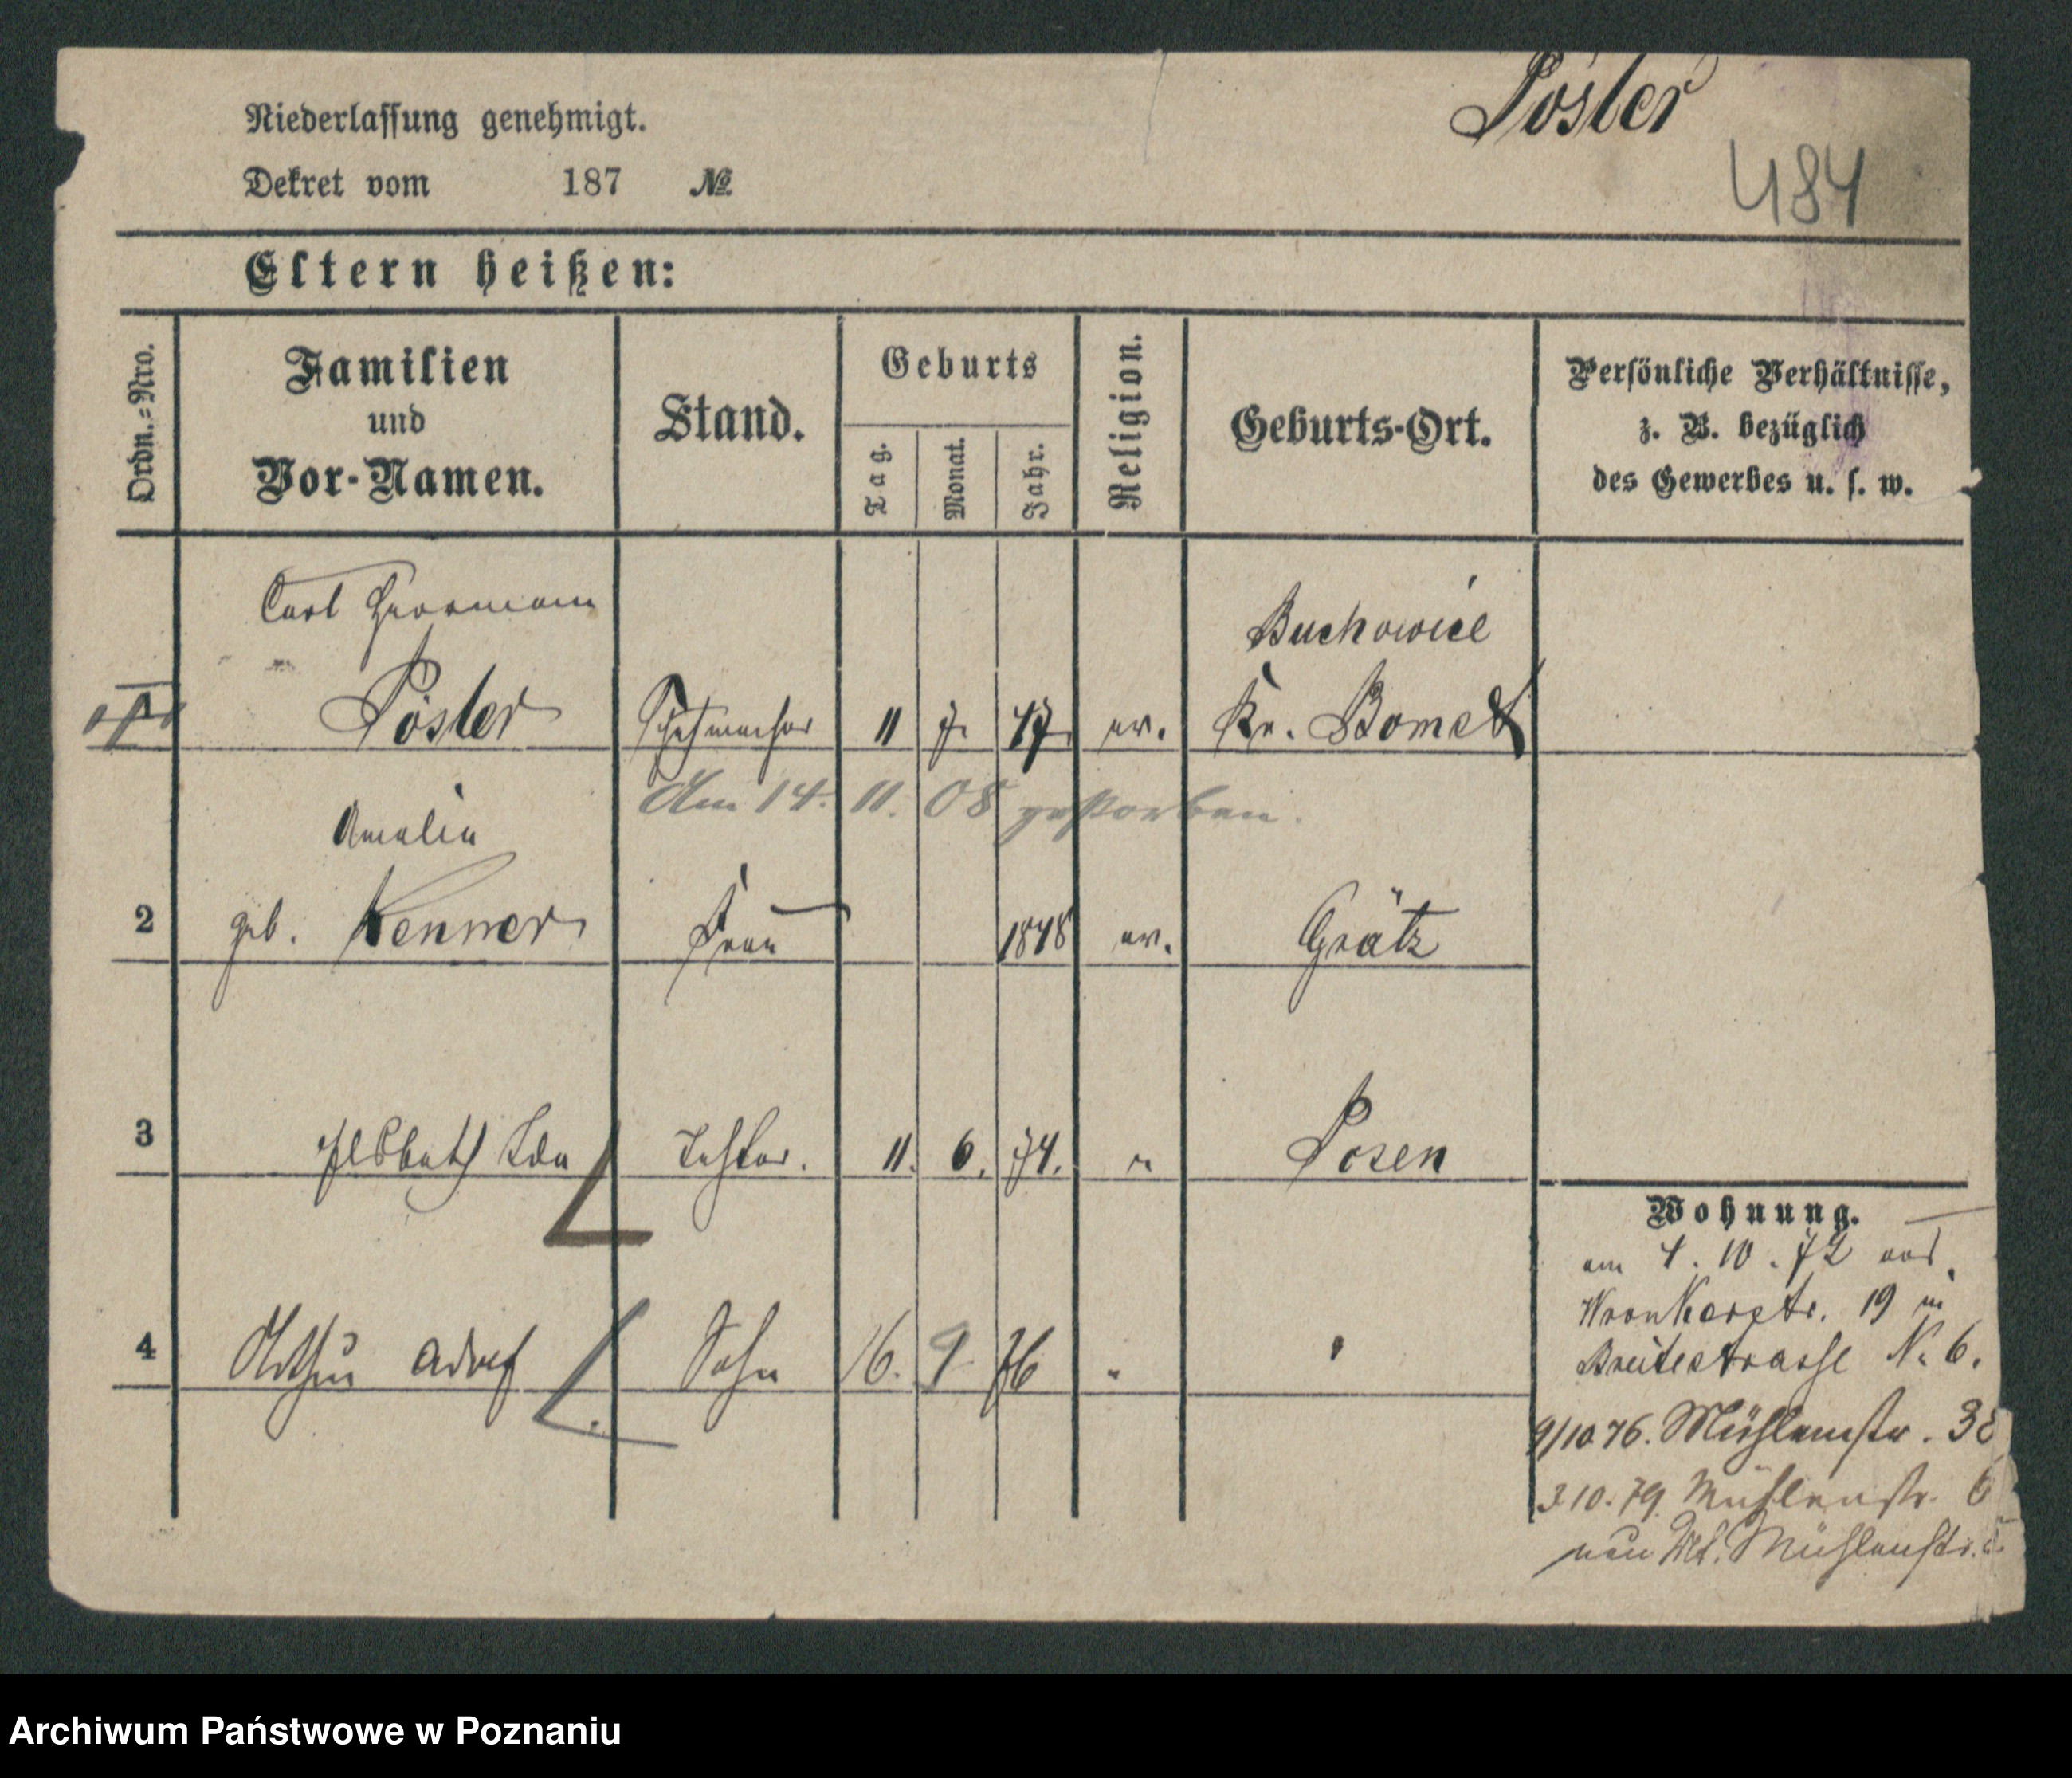 Pösler
Niederlassung genehmigt.
484
Dekret vom 187 №
Eltern heißen:
Ordn.=Nro.
Familien
und
Vor-Namen.
Stand.
Geburts
Tag.
Monat.
Jahr.
Religion.
Geburts-Ort.
Persönliche Verhältnisse,
z. B. bezüglich
des Gewerbes u. s. w.
Carl Herrmann
Buchowice
1 Pösler 11 7. 47. ev. Kr. Bomst
Am 14. 11. 08 gestorben.
Amalie
2 geb. Kenner Frau 1848 ev. Grätz
3 Elsbeth Ida Tochter. 11. 6. 74. " Posen
Wohnung.
am 4. 10. 72 von
Wronkerstr. 19 in
4 Arthur Adolf Sohn 16. 9 76 " "
Breitestrasse N. 6.
9/10 76. Mühlenstr. 38
3.10.79. Mühlenstr. 6
neu Mühlenstr.
Archiwum Państwowe w Poznaniu